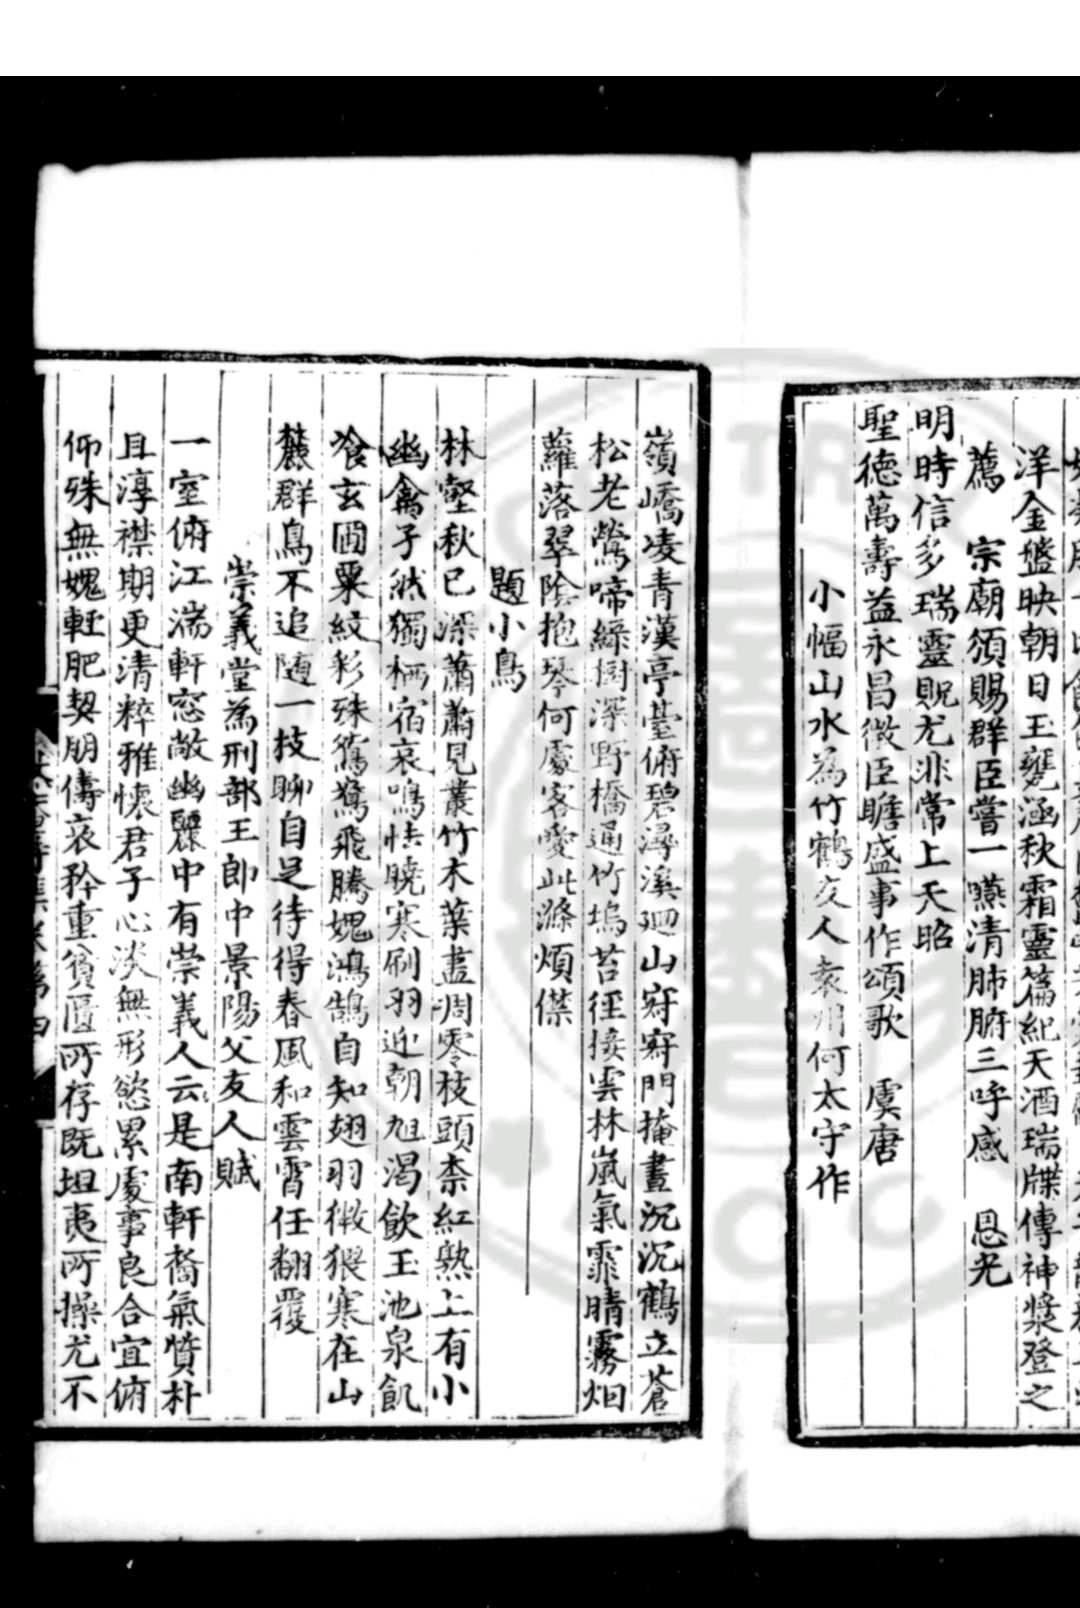 洋金盤映朝日玉甕涵秋霜靈篇紀天酒瑞牒傳神漿登之
薦　宗廟頒賜群臣嘗一嚥清肺腑三呼感　恩光
明時信多瑞靈貺尤非常上天昭
聖德萬壽益永昌微臣瞻盛事作頌歌　虞唐
小幅山水為竹鶴友人袁州何太守作
嶺嶠凌青漢亭臺俯碧潯溪迴山䆟䆟門掩晝沉沉鶴立蒼
松老鶯啼綠樹深野橋通竹塢苔徑接雲林嵐氣霏晴霧烟
蘿落翠陰抱琴何處客愛此滌煩襟
題小鳥
林壑秋已深蕭蕭見叢竹木葉盡凋零枝頭柰紅熟上有小
幽禽孑然獨栖宿哀鳴怯曉寒刷羽迎朝旭渴飲玉池泉飢
飡玄圃粟紋彩殊鴛鴦飛騰媿鴻鵠自知翅羽微猥寒在山
麓群鳥不追隨一技聊自足待得春風和雲霄任翻覆
崇義堂為刑部王郎中景陽父友人賦
一室俯江湍軒窓敞幽麗中有崇義人云是南軒裔氣質朴
且淳襟期更清粹雅懷君子心淡無形慾累處事良合宜俯
仰殊無媿輕肥契朋儔哀矜重貧匱所存既坦夷所操尤不